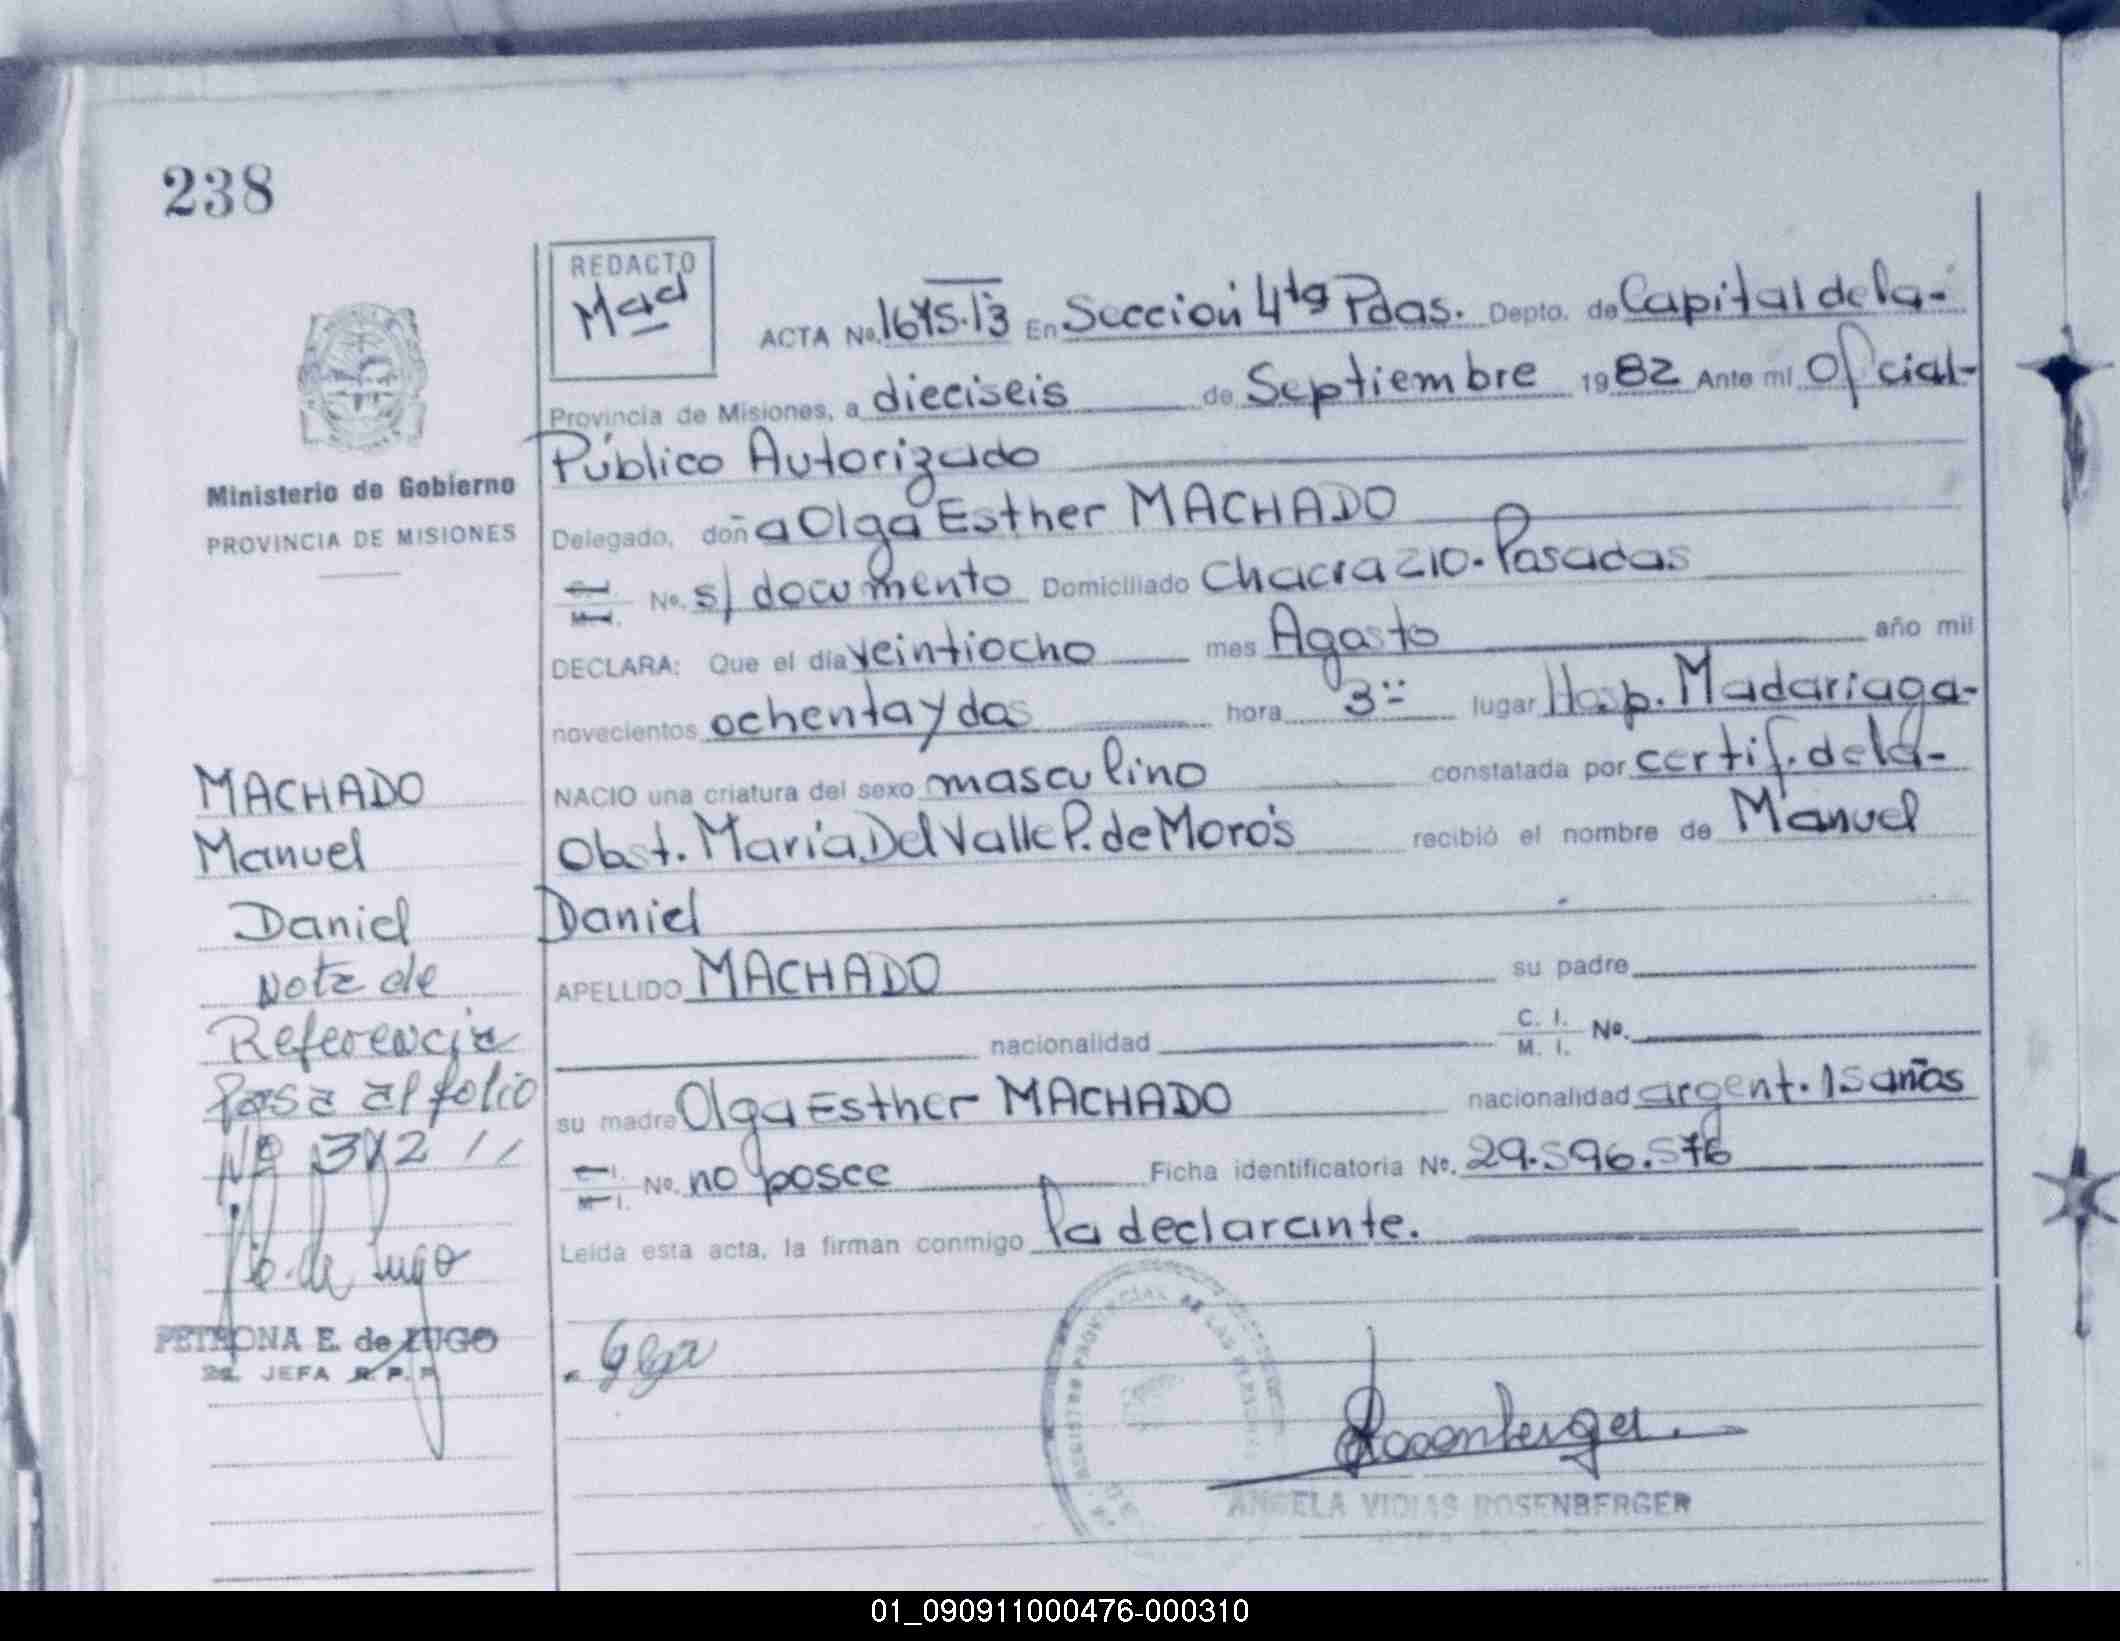 238
REDACTO
Mad
ACTA No. 1675.T3 En Sección 4ta Pdas. Depto. de Capital de la-
Provincia de Misiones, a dieciseis de Septiembre 1982 Ante mí Oficial-
Público Autorizado
Ministerio de Gobierno
PROVINCIA DE MISIONES
Delegado, doña Olga Esther MACHADO
No. s/ documento Domiciliado Chacra 210. Posadas
DECLARA: Que el día veintiocho mes Agosto año mil
novecientos ochenta y dos hora 3 lugar Hosp. Madariaga-
NACIO una criatura del sexo masculino constatada por certif. de la-
Obst. María Del Valle P. de Moros recibió el nombre de Manuel
Daniel
APELLIDO MACHADO su padre
nacionalidad C. I. M. I. No.
su madre Olga Esther MACHADO nacionalidad argent. 15 años
No. no posee Ficha identificatoria No. 29.596.576
Leída esta acta, la firman conmigo la declarante.
MACHADO
Manuel
Daniel
Nota de
Referencia
Pasa al folio
Nº 392 //
PETRONA E. de LUGO
2a. JEFA R. P. P.
Olga
Rosenberger
ANGELA VIDIAS ROSENBERGER
01_090911000476-000310